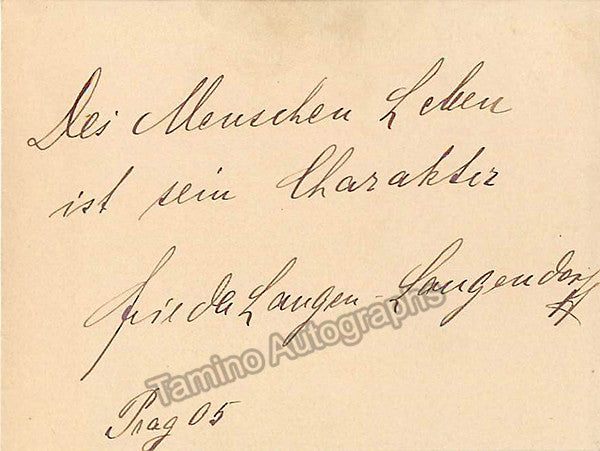 Des Menschen Leben
ist sein Charakter
Frieda Langen-Langendorf
Tamino Autographs
Prag 05